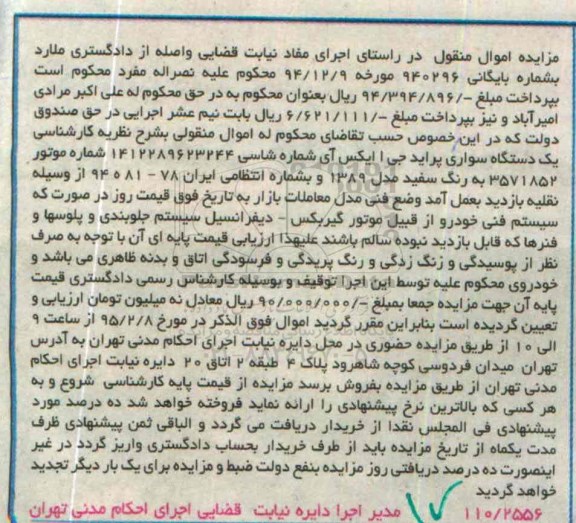 مزایده اموال منقول در راستای اجرای مفاد نیابت قضایی واصله از دادگستری ملارد
بشماره بایگانی ۹۴۰۲۹۶ مورخه ۹۴/۱۲/۹ محکوم علیه نصراله مفرد محکوم است
بپرداخت مبلغ -/۹۴/۳۹۴/۸۹۶ ریال بعنوان محکوم به در حق محکوم له علی اکبر مرادی
امیرآباد و نیز بپرداخت مبلغ -/۶/۶۲۱/۱۱۱ ریال بابت نیم عشر اجرایی در حق صندوق
دولت که در این خصوص حسب تقاضای محکوم له اموال منقولی بشرح نظریه کارشناسی
یک دستگاه سواری پراید جی ا ایکس آی شماره شاسی ۱۴۱۲۲۸۹۶۲۳۲۴۴ شماره موتور
۳۵۷۱۸۵۲ به رنگ سفید مدل ۱۳۸۹ و بشماره انتظامی ایران ۷۸ - ۸۱ ۰ ۹۴ از وسیله
نقلیه بازدید بعمل آمد وضع فنی مدل معاملات بازار به تاریخ فوق قیمت روز در صورت که
سیستم فنی خودرو از قبیل موتور گیربکس - دیفرانسیل سیستم جلوبندی و پلوسها و
فنرها که قابل بازدید نبوده سالم باشند علیهذا ارزیابی قیمت پایه ای آن با توجه به صرف
نظر از پوسیدگی و زنگ زدگی و رنگ پریدگی و فرسودگی اتاق و بدنه ظاهری می باشد و
خودروی محکوم علیه توسط این اجرا توقیف و بوسیله کارشناس رسمی دادگستری قیمت
پایه آن جهت مزایده جمعا بمبلغ -/۹۰/۰۰۰/۰۰۰ ریال معادل نه میلیون تومان ارزیابی و
تعیین گردیده است بنابراین مقرر گردید اموال فوق الذکر در مورخ ۹۵/۲/۸ از ساعت ۹
الی ۱۰ از طریق مزایده حضوری در محل دایره نیابت اجرای احکام مدنی تهران به آدرس
تهران میدان فردوسی کوچه شاهرود پلاک ۴ طبقه ۲ اتاق ۲۰ دایره نیابت اجرای احکام
مدنی تهران از طریق مزایده بفروش برسد مزایده از قیمت پایه کارشناسی شروع و به
هر کسی که بالاترین نرخ پیشنهادی را ارائه نماید فروخته خواهد شد ده درصد مورد
پیشنهادی فی المجلس نقدا از خریدار دریافت می گردد و الباقی ثمن پیشنهادی ظرف
مدت یکماه از تاریخ مزایده باید از طرف خریدار بحساب دادگستری واریز گردد در غیر
اینصورت ده درصد دریافتی روز مزایده بنفع دولت ضبط و مزایده برای یک بار دیگر تجدید
خواهد گردید
۱۱۰/۲۵۵۶ مدیر اجرا دایره نیابت قضایی اجرای احکام مدنی تهران